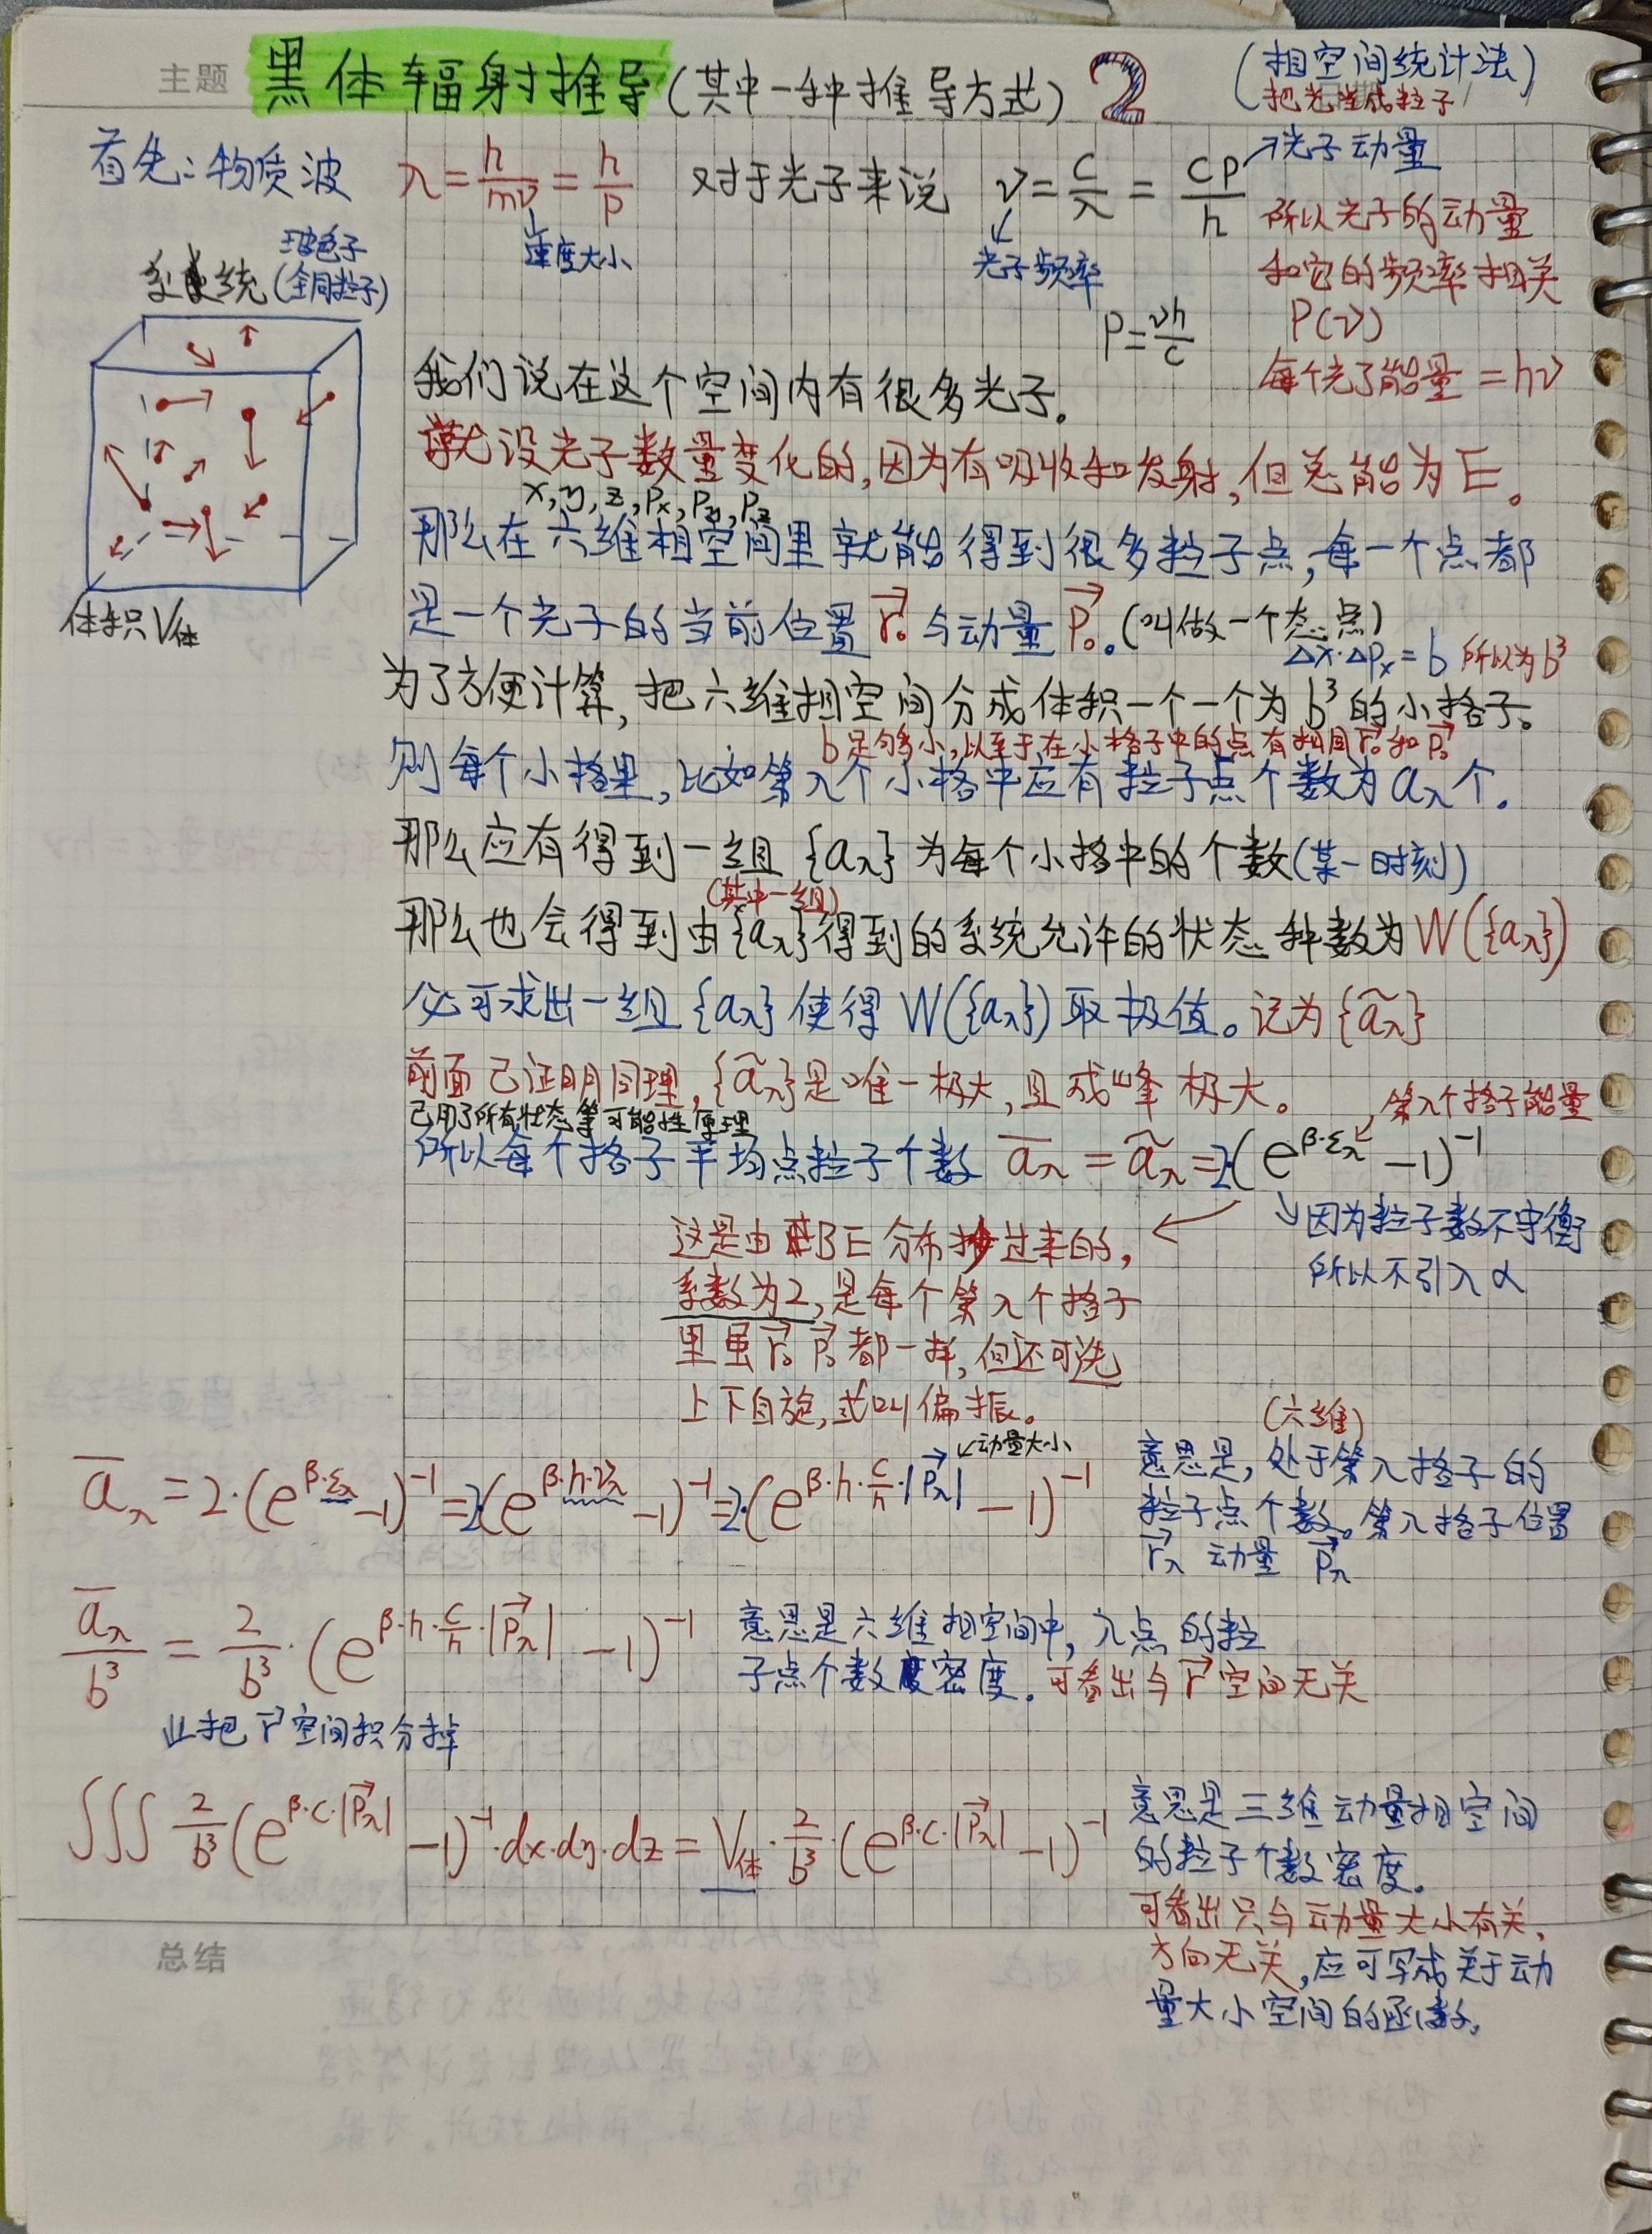 主题 黑体辐射推导(其中一种推导方式) 2 (相空间统计法)
把光当成粒子
首先:物质波 λ=h/mv=h/p 对于光子来说 ν=c/λ=cp/h →光子动量
速度大小
光子频率
所以光子的动量
和它的频率相关
P=νh/c P(ν)
每个光子能量=hν
系统(全同粒子)
玻色子
体积V体
我们说在这个空间内有很多光子。
就设光子数量变化的,因为有吸收和发射,但总能为E。
x,y,z,Px,Py,Pz
那么在六维相空间里就能得到很多粒子点,每一个点都
是一个光子的当前位置r⃗₀与动量P⃗₀。(叫做一个态点)
Δx·ΔPx=b 所以为b³
为了方便计算,把六维相空间分成体积一个一个为b³的小格子。
b足够小,以至于在小格子中的点有相同r⃗₀和P⃗₀
则每个小格里,比如第λ个小格中应有粒子点个数为aλ个.
那么应有得到一组{aλ}为每个小格中的个数(某一时刻)
(其中一组)
那么也会得到由{aλ}得到的系统允许的状态种数为W({aλ})
必可求出一组{aλ}使得W({aλ})取极值。记为{ãλ}
前面已证明同理,{ãλ}是唯一极大,且成峰极大。
已用了所有状态等可能性原理
第λ个格子能量
所以每个格子平均点粒子个数 āλ=ãλ=2(e^{β·ελ}-1)⁻¹
↘因为粒子数不守衡
所以不引入α
这是由BE分布抄过来的,
系数为2,是每个第λ个格子
里虽r⃗₀P⃗₀都一样,但还可选
上下自旋,或叫偏振。
←动量大小
āλ=2·(e^{β·ελ}-1)⁻¹=2(e^{β·h·νλ}-1)⁻¹=2·(e^{β·h·c/h·|P⃗λ|}-1)⁻¹
(六维)
意思是,处于第λ格子的
粒子点个数。第λ格子位置
r⃗λ 动量 P⃗λ
āλ/b³=2/b³·(e^{β·h·c/h·|P⃗λ|}-1)⁻¹
意思是六维相空间中,λ点的粒
子点个数密度。可看出与r⃗空间无关
⇓把r⃗空间积分掉
∭2/b³(e^{β·c·|P⃗λ|}-1)⁻¹·dx·dy·dz=V体·2/b³·(e^{β·c·|P⃗λ|}-1)⁻¹
意思是三维动量相空间
的粒子个数密度。
可看出只与动量大小有关,
方向无关,应可写成关于动
量大小空间的函数,
总结